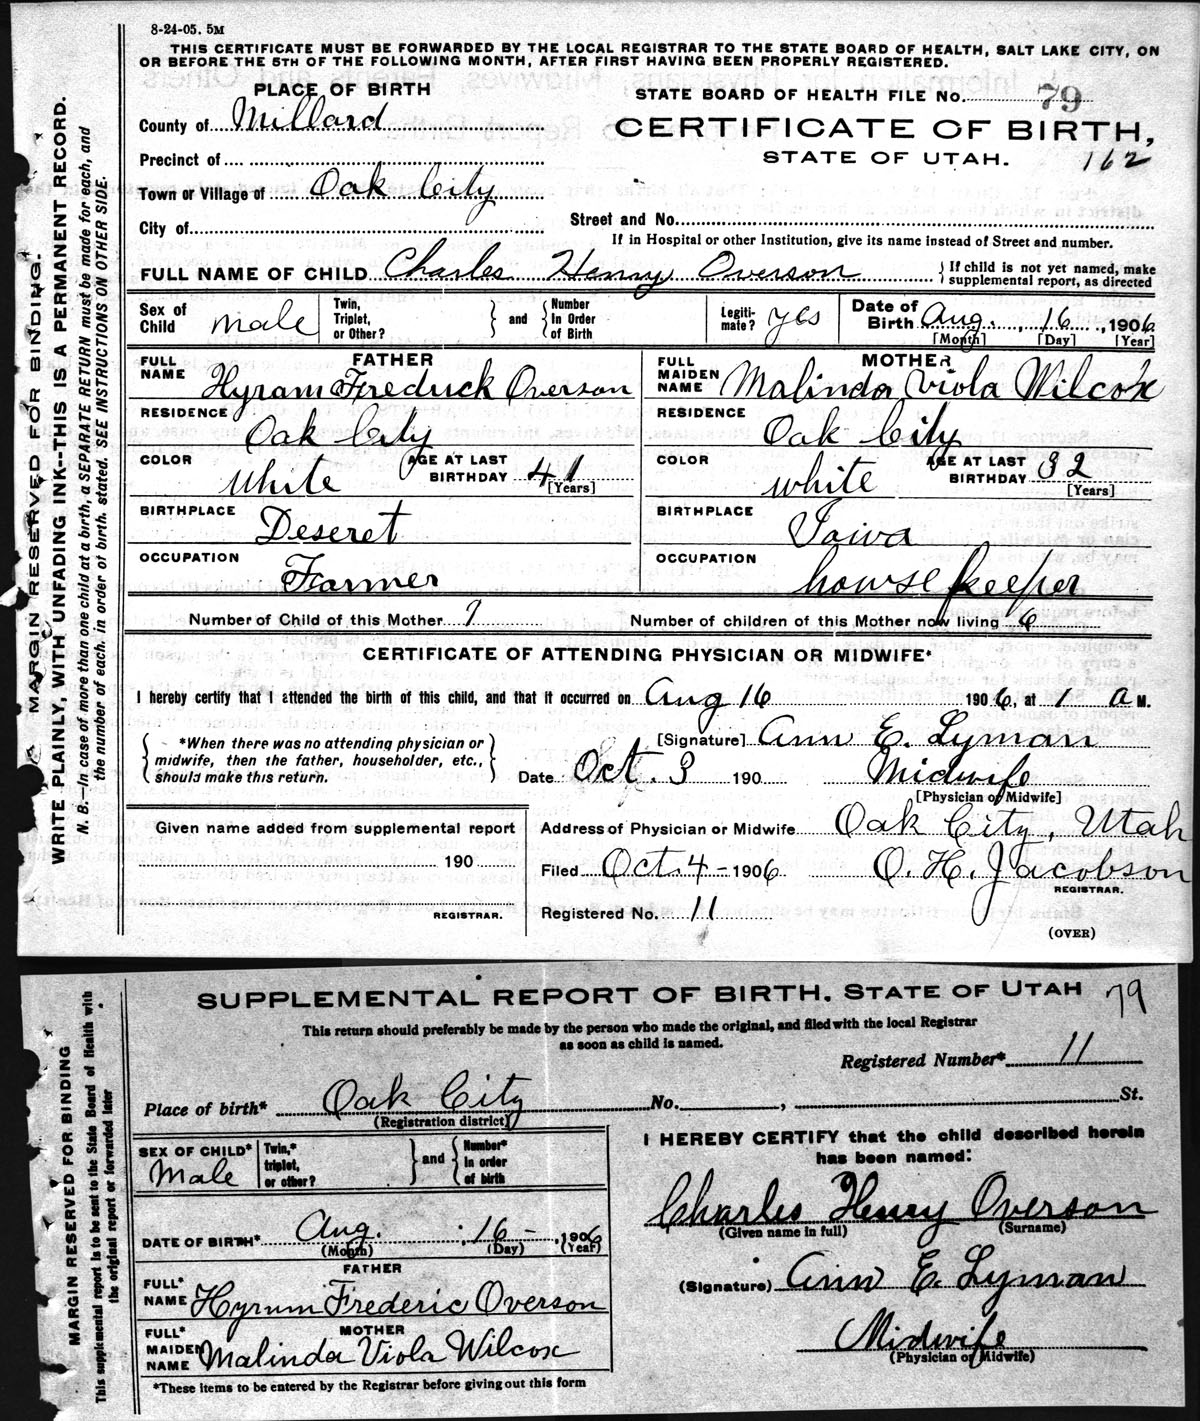 8-24-05. 5M
THIS CERTIFICATE MUST BE FORWARDED BY THE LOCAL REGISTRAR TO THE STATE BOARD OF HEALTH, SALT LAKE CITY, ON
OR BEFORE THE 5TH OF THE FOLLOWING MONTH, AFTER FIRST HAVING BEEN PROPERLY REGISTERED.
MARGIN RESERVED FOR BINDING.
WRITE PLAINLY, WITH UNFADING INK--THIS IS A PERMANENT RECORD.
N. B.—In case of more than one child at a birth, a SEPARATE RETURN must be made for each, and
the number of each, in order of birth, stated. SEE INSTRUCTIONS ON OTHER SIDE.
PLACE OF BIRTH
STATE BOARD OF HEALTH FILE No. 79
County of Millard
CERTIFICATE OF BIRTH,
Precinct of
STATE OF UTAH. 162
Town or Village of Oak City
City of
Street and No.
If in Hospital or other Institution, give its name instead of Street and number.
FULL NAME OF CHILD Charles Henry Overson
If child is not yet named, make
supplemental report, as directed
Sex of Child male
Twin, Triplet, or Other?
and
Number In Order of Birth
Legiti-mate? yes
Date of Birth Aug. 16, 1906
[Month] [Day] [Year]
FATHER
FULL NAME Hyram Fredrick Overson
MOTHER
FULL MAIDEN NAME Malinda Viola Wilcox
RESIDENCE Oak City
RESIDENCE Oak City
COLOR white AGE AT LAST BIRTHDAY 41 [Years]
COLOR white AGE AT LAST BIRTHDAY 32 [Years]
BIRTHPLACE Deseret
BIRTHPLACE Iowa
OCCUPATION Farmer
OCCUPATION house keeper
Number of Child of this Mother 7 Number of children of this Mother now living 6
CERTIFICATE OF ATTENDING PHYSICIAN OR MIDWIFE*
I hereby certify that I attended the birth of this child, and that it occurred on Aug 16 1906, at 1 a M.
*When there was no attending physician or
midwife, then the father, householder, etc.,
should make this return.
[Signature] Ann E. Lyman
Date Oct. 3 190 Midwife
[Physician or Midwife]
Given name added from supplemental report
190
REGISTRAR.
Address of Physician or Midwife Oak City, Utah
Filed Oct. 4 - 1906 O. H. Jacobson
REGISTRAR.
Registered No. 11
(OVER)
SUPPLEMENTAL REPORT OF BIRTH. STATE OF UTAH 79
This return should preferably be made by the person who made the original, and filed with the local Registrar
as soon as child is named.
Registered Number* 11
MARGIN RESERVED FOR BINDING
This supplemental report is to be sent to the State Board of Health with
the original report or forwarded later
Place of birth* Oak City No. , St.
(Registration district)
SEX OF CHILD* Male
Twin,* triplet, or other?
and
Number* in order of birth
I HEREBY CERTIFY that the child described herein
has been named:
Charles Henry Overson
(Given name in full) (Surname)
DATE OF BIRTH* Aug. 16 - , 1906
(Month) (Day) (Year)
FATHER
FULL* NAME Hyrum Frederic Overson
(Signature) Ann E. Lyman
MOTHER
FULL* MAIDEN NAME Malinda Viola Wilcox
Midwife
(Physician or Midwife)
*These items to be entered by the Registrar before giving out this form